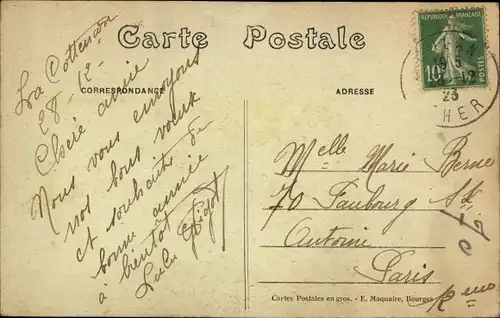 Carte Postale
CORRESPONDANCE
ADRESSE
RÉPUBLIQUE FRANÇAISE
10c
POSTES
23
CHER
La
28-12-
Chère amie
Nous vous envoyons
nos bons voeux
et souhaits de
bonne année
à bientôt
Lulu
Melle Marie Berne
70 Faubourg St
Antoine
Paris
Cartes Postales en gros. - E. Maquaire, Bourges